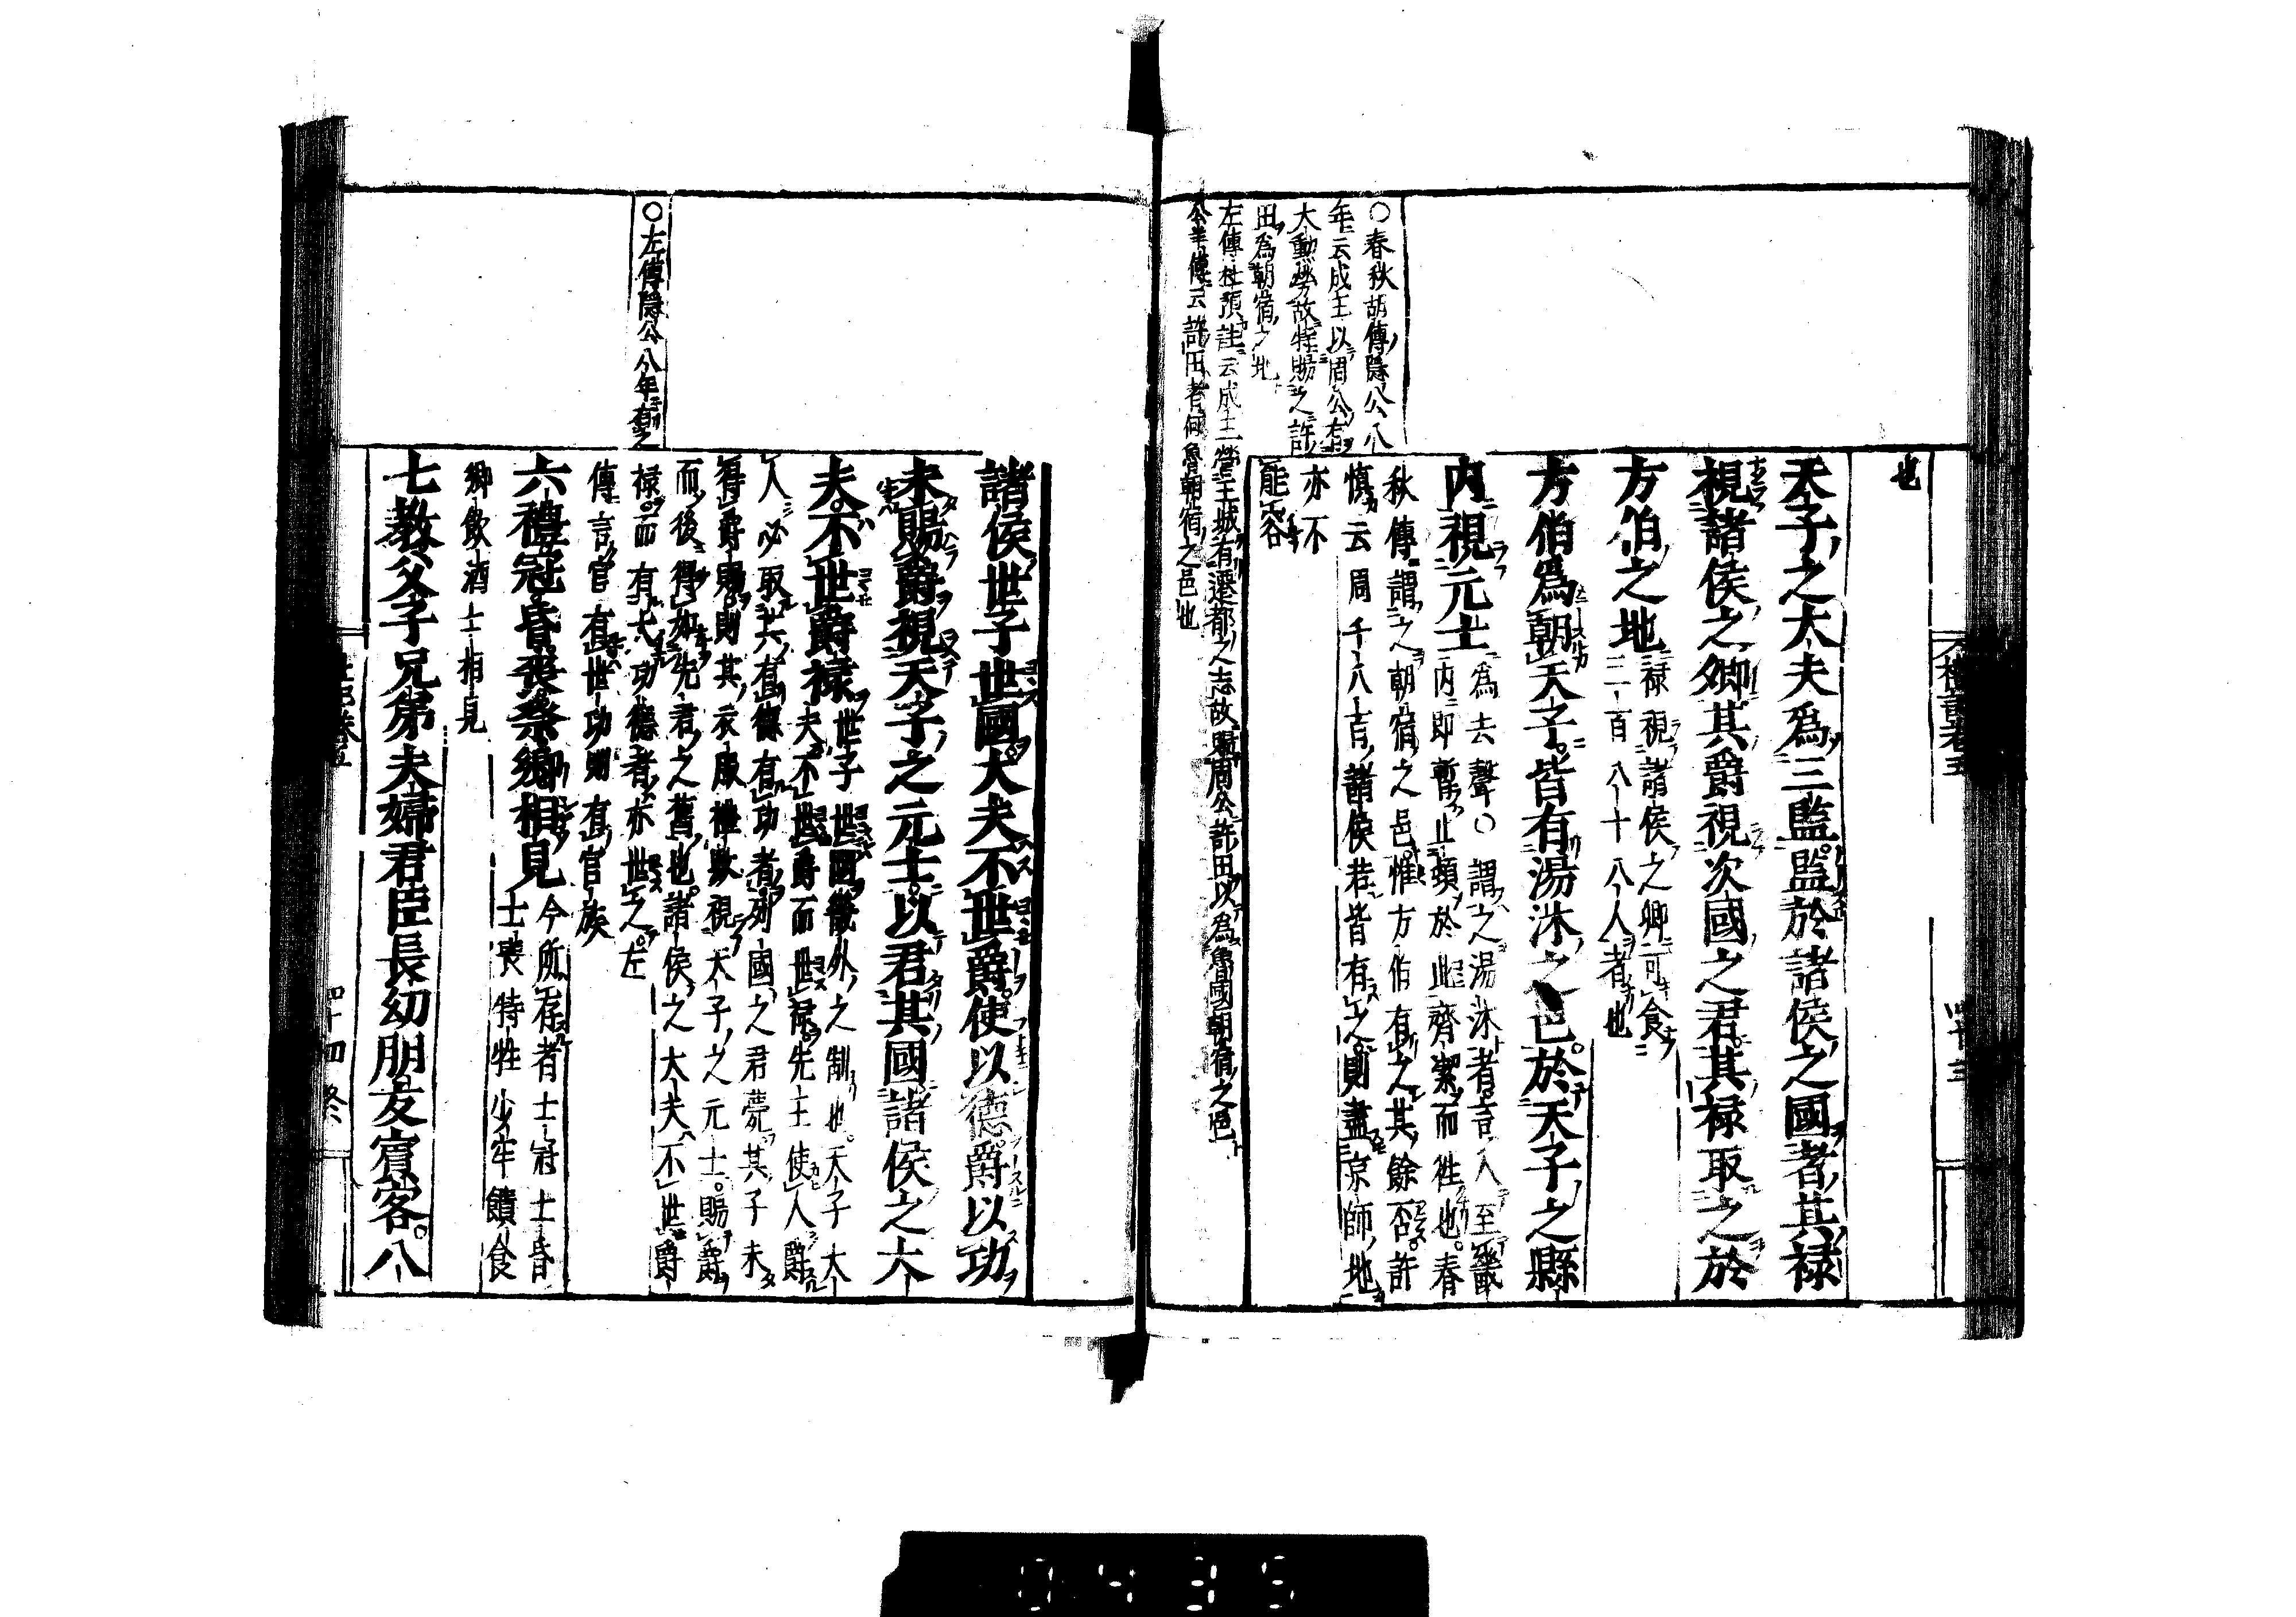 ○春秋胡傳隱公八
年云成王以周公有
大勲勞故特賜之許
田爲朝宿之地
左傳杜預註云成王營王城有遷都之志故賜周公許田以爲魯國朝宿之邑
公羊傳云許田者何魯朝宿之邑也
也
天子之大夫爲三監監於諸侯之國者其禄
視諸侯之卿其爵視次國之君其禄取之於
方伯之地
禄視諸侯之卿可食
二百八十八人者也
方伯爲朝天子皆有湯沐之邑於天子之縣
内視元士
爲去聲○謂之湯沐者言入至畿
内即暫止頓於此齊潔而徃也春
秋傳謂之朝宿之邑惟方伯有之其餘否許
慎云周千八百諸侯若皆有之則盡京師地
亦不
能容
○左傳隱公八年有之
諸侯世子世國大夫不世爵使以德爵以功
未賜爵視天子之元士以君其國諸侯之大
夫不世爵禄
世子世國畿外之制也天子大
夫不世爵而世禄先王使人爵
人必取其有德有功者列國之君薨其子未
得爵賜則其衣服禮數視天子之元士賜爵
而後得如先君之舊也諸侯之大夫不世爵
禄而有大功德者亦世之左
傳言官有世功則有官族
六禮冠昏喪祭鄉相見
今所存者士冠士昏
士喪特牲少牢饋食
鄉飲酒士相見
七教父子兄弟夫婦君臣長幼朋友賓客八
四十四終
0435